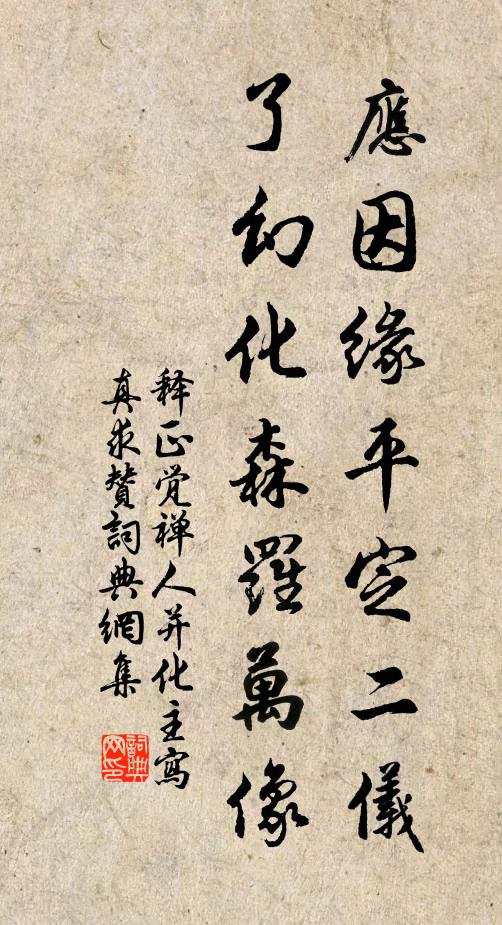 應因緣平定二儀
了幻化森羅萬像
释正觉禅人并化主寫
真求贊詞典網集
詞典
网印